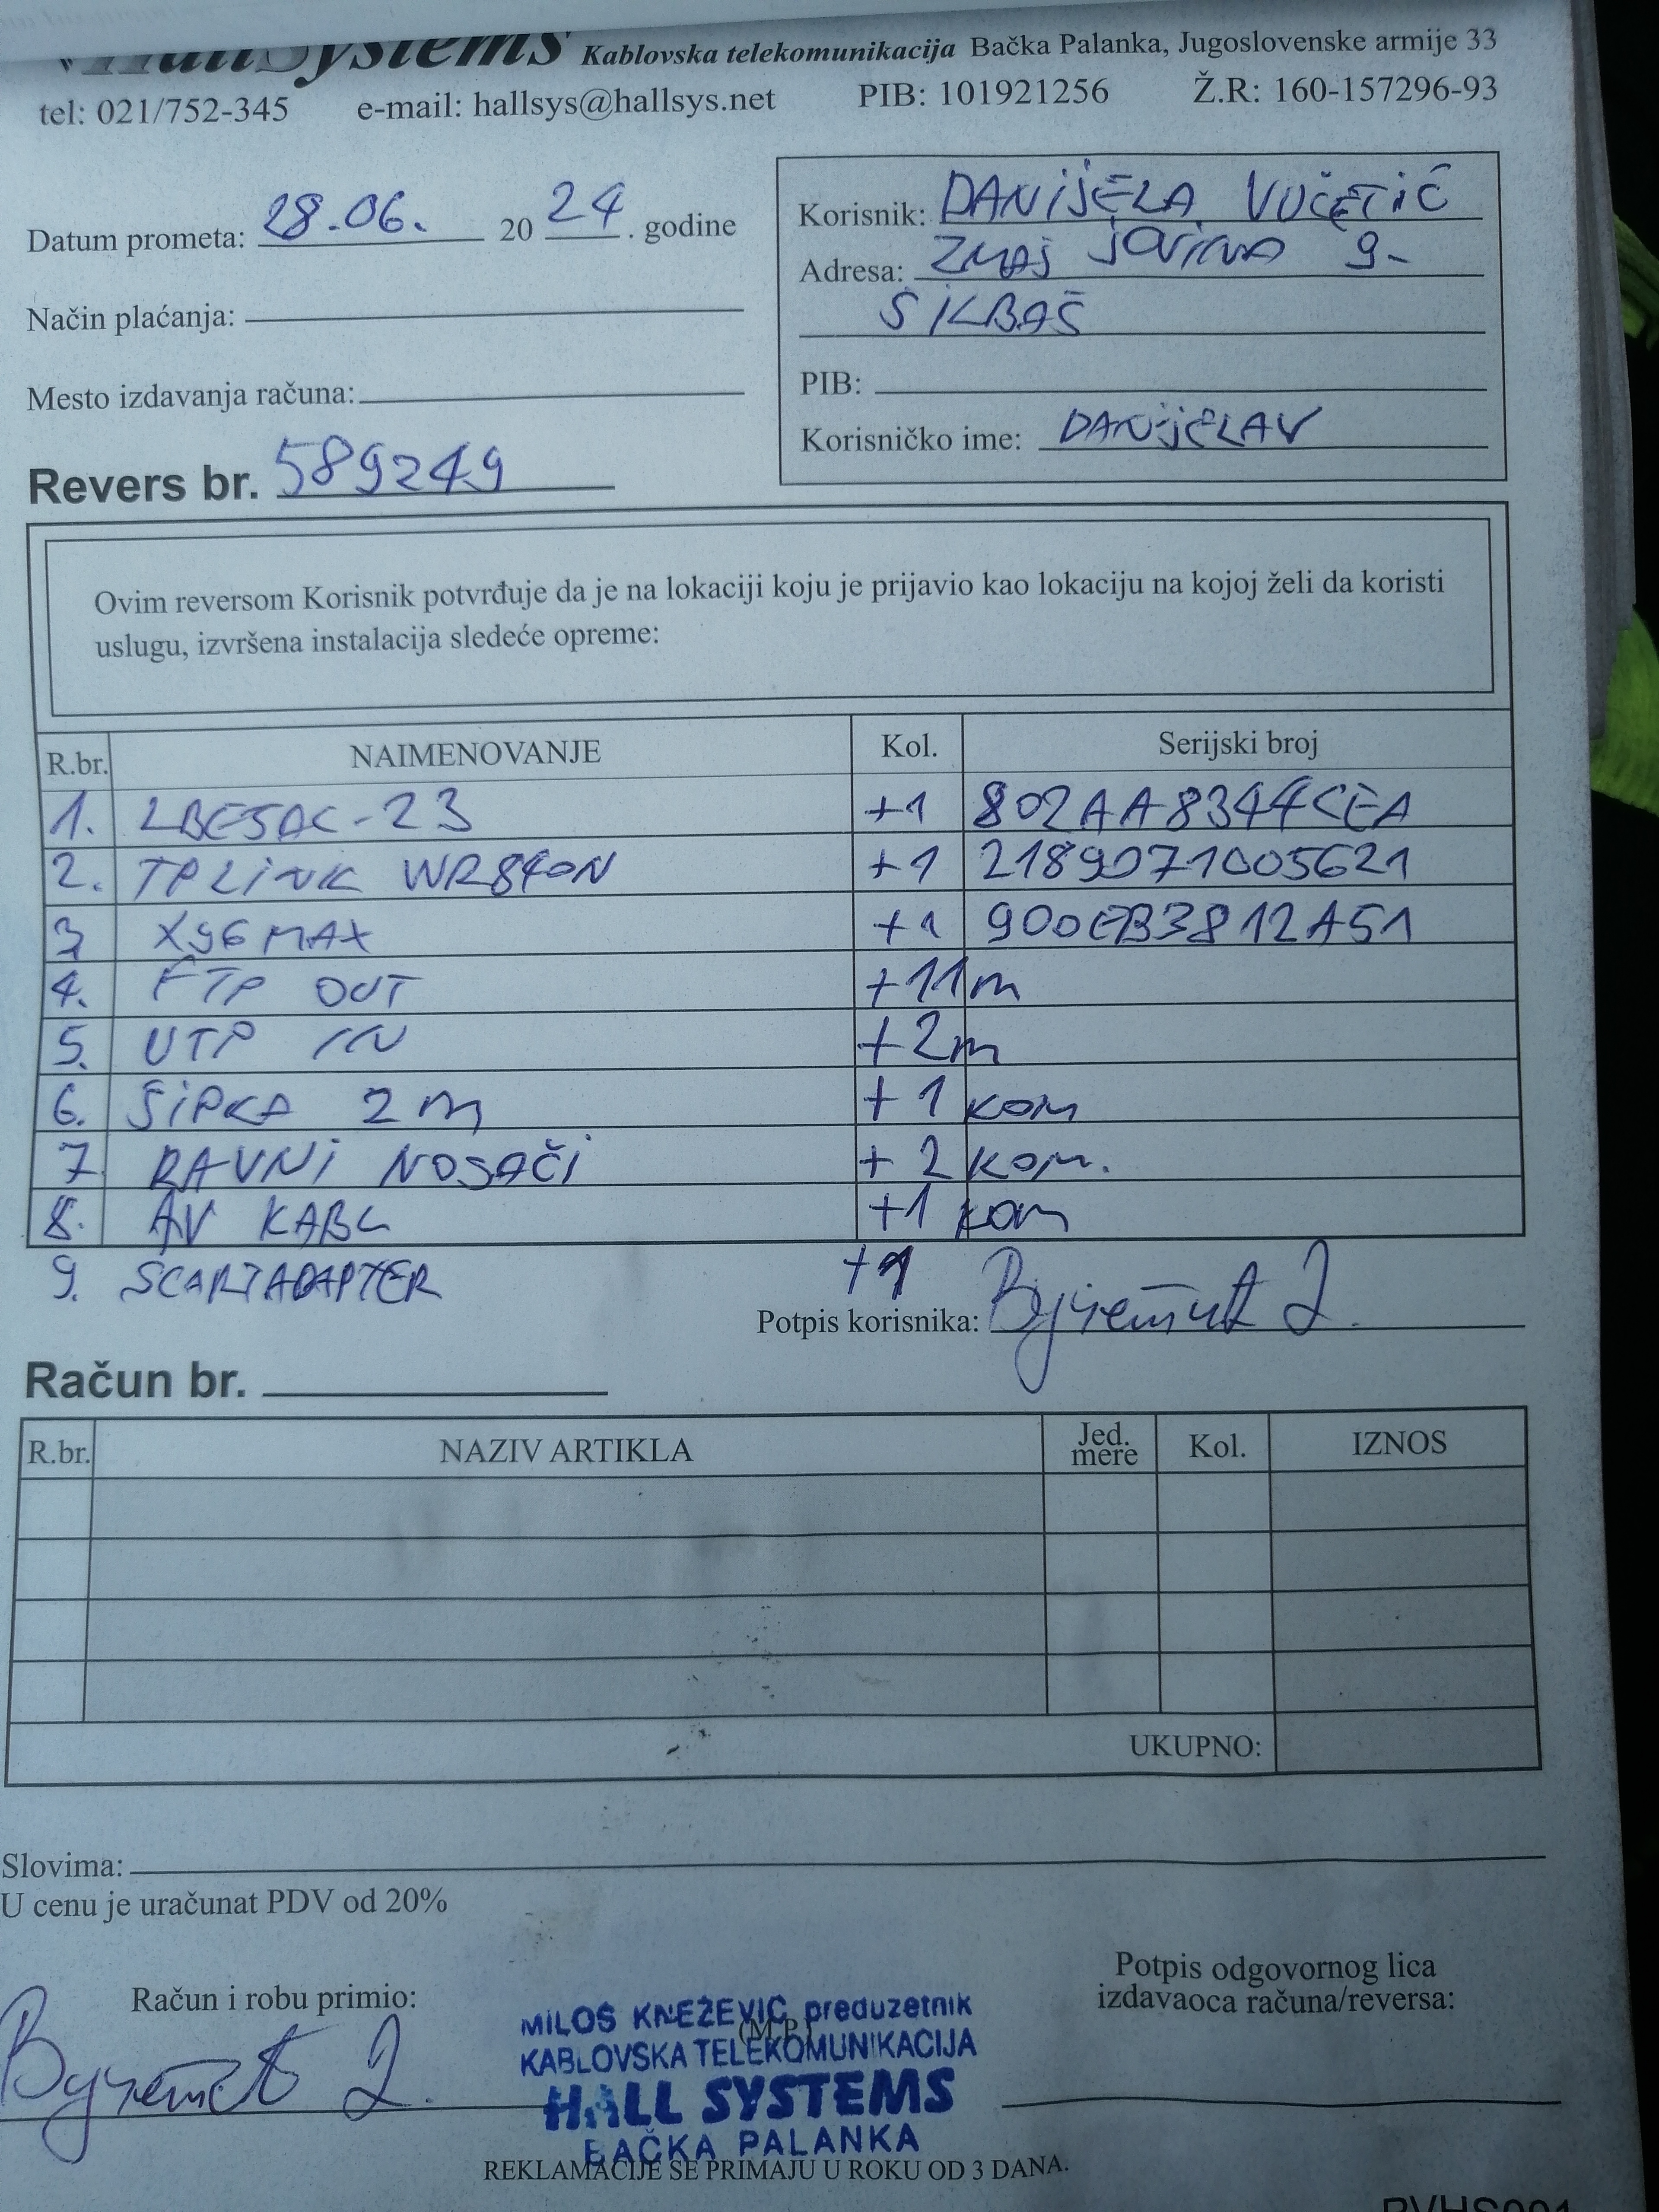 HallSystems Kablovska telekomunikacija Bačka Palanka, Jugoslovenske armije 33
tel: 021/752-345 e-mail: hallsys@hallsys.net PIB: 101921256 Ž.R: 160-157296-93
Datum prometa: 28.06. 20 24 . godine
Način plaćanja:
Mesto izdavanja računa:
Korisnik: DANIJELA VUČETIĆ
Adresa: ZMAJ JOVINA 9-
SILBAŠ
PIB:
Korisničko ime: DANIJELAV
Revers br. 589249
Ovim reversom Korisnik potvrđuje da je na lokaciji koju je prijavio kao lokaciju na kojoj želi da koristi
uslugu, izvršena instalacija sledeće opreme:
R.br. NAIMENOVANJE Kol. Serijski broj
1. LBE5AC-23 +1 802AA8344CEA
2. TPLINK WR840N +1 2189071005621
3 X96MAX +1 900EB3812A51
4. FTP OUT +11m
5. UTP IN +2m
6. ŠIPKA 2m +1 kom
7 RAVNI NOSAČI +2 kom.
8. AV KABL +1 kom
9. SCARTADAPTER +1
Potpis korisnika: Вучетић Д.
Račun br.
R.br. NAZIV ARTIKLA Jed. mere Kol. IZNOS
UKUPNO:
Slovima:
U cenu je uračunat PDV od 20%
Račun i robu primio:
Вучетић Д.
(M.P.)
MILOŠ KNEŽEVIĆ preduzetnik
KABLOVSKA TELEKOMUNIKACIJA
HALL SYSTEMS
BAČKA PALANKA
Potpis odgovornog lica
izdavaoca računa/reversa:
REKLAMACIJE SE PRIMAJU U ROKU OD 3 DANA.